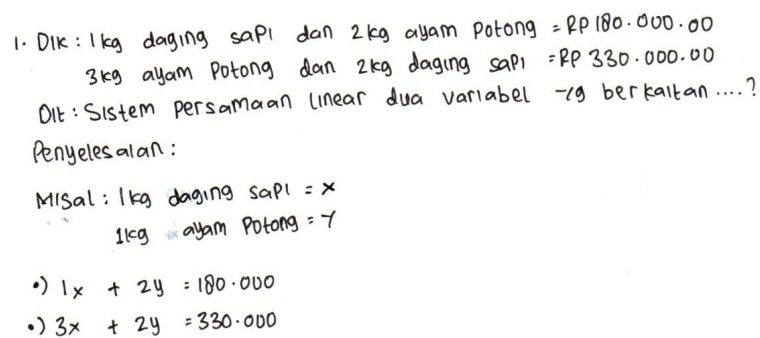 1. Dik : 1 kg daging sapi dan 2 kg ayam potong = RP 180.000.00
3kg ayam potong dan 2kg daging sapi = RP 330.000.00
Dit : Sistem persamaan linear dua variabel yg berkaitan ....?
Penyelesaian :
Misal : 1 kg daging sapi = x
1kg ayam potong = y
•) 1x + 2y = 180.000
•) 3x + 2y = 330.000